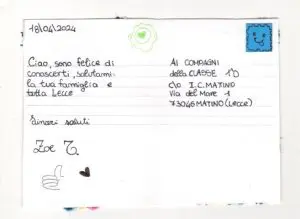 18/04/2024
Ciao, sono felice di
conoscerti, salutami
la tua famiglia e
tutta Lecce
Sinceri saluti
Zoe T.
AI COMPAGNI
della CLASSE 1°D
c/o I.C. MATINO
Via del Mare 1
73046 MATINO (Lecce)